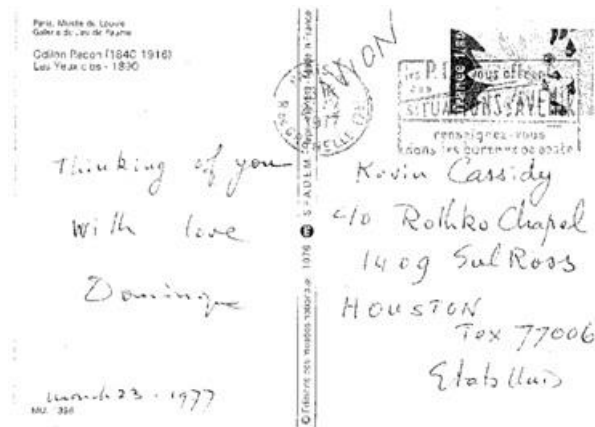 Paris, Musée du Louvre
Galerie du Jeu de Paume
Odilon Redon (1840 1916)
Les Yeux clos - 1890
Thinking of you
With love
Dominique
march 23 - 1977
MU.
© Editions des musées nationaux 1976
S P A D E M
Made in France
AVION
France
les P. vous offrent
des
SITUATIONS D'AVENIR
renseignez-vous
dans les bureaux de poste
Kevin Cassidy
c/o Rothko Chapel
1409 Sul Ross
HOUSTON
Tex 77006
Etats Unis